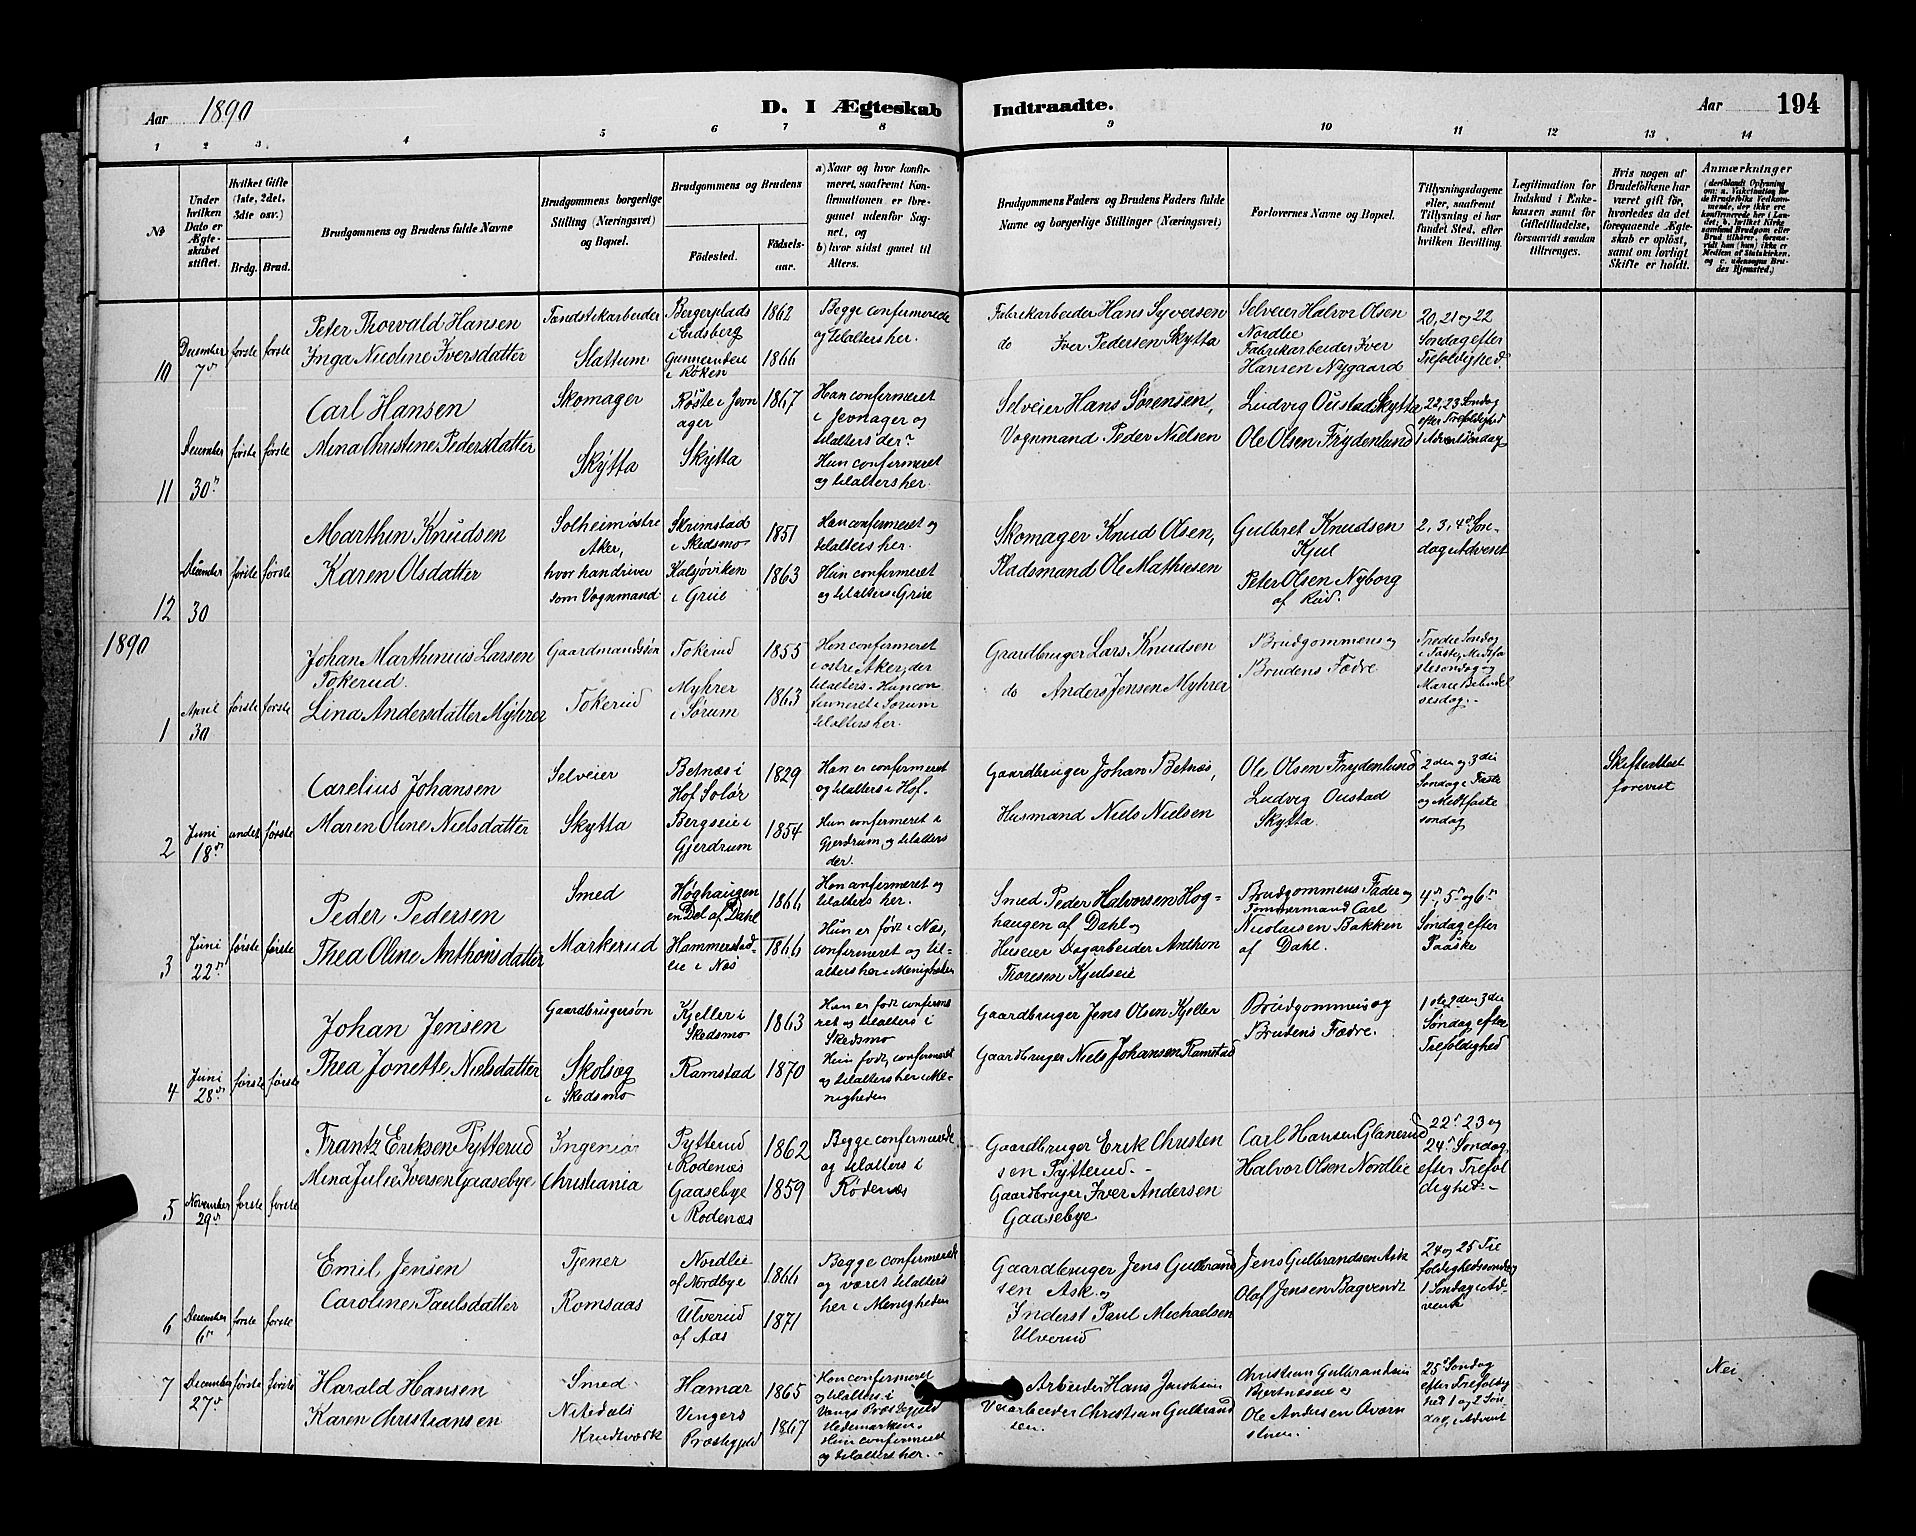 Aar 1890 D. I Ægteskab Indtraadte. Aar 194
1 2 3 4 5 6 7 8 9 10 11 12 13 14
No
Under hvilken Dato er Ægteskabet stiftet.
Hvilket Gifte (1ste, 2det, 3die osv.)
Brdg. Brud.
Brudgommens og Brudens fulde Navne
Brudgommens borgerlige Stilling (Næringsvei) og Bopæl.
Brudgommens og Brudens
Födested.
Födselsaar.
a) Naar og hvor konfirmeret, saafremt Konfirmationen er foregaaet udenfor Sognet, og
b) hvor sidst gaaet til Alters.
Brudgommens Faders og Brudens Faders fulde Navne og borgerlige Stillinger (Næringsvei)
Forlovernes Navne og Bopæl.
Tillysningsdagene eller, saafremt Tillysning ei har fundet Sted, efter hvilken Bevilling.
Legitimation for Indskud i Enkekassen samt for Giftetilladelse, forsaavidt saadan tiltrænges.
Hvis nogen af Brudefolkene har været gift för, hvorledes da det foregaaende Ægteskab er oplöst, samt om lovligt Skifte er holdt.
Anmærkninger
(deriblandt Oplysning om: a. Vakcination for de Brudefolks Vedkommende, der ikke ere konfirmerede her i Landet; b. hvilket Kirkesamfund Brudgom eller Brud tilhörer, forsaavidt han (hun) ikke er Medlem af Statskirken, og c. udensogns Brudes Hjemsted.)
10 December 7de første første
Peter Thorvald Hansen
Inga Nicoline Iversdatter
Tændstikarbeider
Slattum
Bergerplads i Aadsberg 1862
i Røken 1866
Begge confirmerede og tilalters her.
Fabrikarbeider Hans Syversen
do Iver Pedersen Skytta
Selveier Halvor Olsen Nordlie
Fabrikarbeider Iver Hansen Nygaard
20, 21 og 22 Søndag efter Trefoldighed
11 December 30 første første
Carl Hansen
Mina Christine Pedersdatter
Skomager
Skytta
Røste i Jevnager 1867
Skytta
Han confirmeret i Jevnager og tilalters der
Hun confirmeret og tilalters her.
Selveier Hans Sørensen,
Vognmand Peder Nielsen
Ludvig Oustad Skytta
Ole Olsen Frydenlund
22, 23 Søndag efter Trefoldighed
1 Adventsøndag
12 December 30 første første
Marthin Knudsen
Karen Olsdatter
Solheim østre Aker,
hvor han driver som Vognmand
Skrimstad i Skedsmo 1851
Kalsjøviken i Grue 1863
Han confirmeret og tilalters her.
Hun confirmeret og tilalters i Grue
Skomager Knud Olsen,
Pladsmand Ole Mathiesen
Gulbret Knudsen Kjul
Peter Olsen Nyborg af Rud.
2, 3, 4de Søndag i Advent
1890
1 April 30 første første
Johan Marthinius Larsen Tokerud.
Lina Andersdatter Myhrer
Gaardmandssøn
Tokerud
Tokerud 1855
Myhrer i Sørum 1863
Han confirmeret i østre Aker, der tilalters. Hun confirmeret i Sørum tilalters her.
Gaardbruger Lars Knudsen
do Anders Jensen Myhrer
Brudgommens og Brudens Fædre
Tredie Søndag i Faste, Midfastesøndag og Marie Bebudelsesdag.
2 Juni 18de andet første
Carelius Johansen
Maren Oline Nielsdatter
Selveier
Skytta
Betnæs i Hof Solør 1829
Bergseie i Gjerdrum 1854
Han er confirmeret og tilalters i Hof.
Hun confirmeret i Gjerdrum, og tilalters der.
Gaardbruger Johan Betnæs,
Husmand Niels Nielsen
Ole Olsen Frydenlund
Ludvig Oustad Skytta
2den og 3die Søndag i Faste og Midtfastesøndag
Skifteattest forevist
3 Juni 22de første første
Peder Pedersen
Thea Oline Anthonsdatter
Smed
Markerud
Høghaugen en Del af Dahl 1866
Hammerstadeie i Næs 1866
Han confirmeret og tilalters her.
Hun er født i Næs, confirmeret og tilalters her i Menigheden
Smed Peder Halvorsen Høghaugen af Dahl og
Huseier Dagarbeider Anthon Thoresen Kjulseie
Brudgommens Fader og Tømmermand Carl Nicolaisen Bakken af Dahl.
4de, 5te og 6te Søndag efter Paaske
4 Juni 28de første første
Johan Jensen
Thea Jonette Nielsdatter
Gaardbrugersøn
Skolsæg i Skedsmo
Kjeller i Skedsmo 1863
Ramstad 1870
Han er født confirmeret og tilalters i Skedsmo
Hun født, confirmeret og tilalters her i Menigheden
Gaardbruger Jens Olsen Kjeller
Gaardbruger Niels Johansen Ramstad
Brudgommens og Brudens Fædre.
1ste 2den 3die Søndag efter Trefoldighed
5 November 29de første første
Frantz Eriksen Pytterud
Mina Julie Iversen Gaasebye
Ingeniør
Christiania
Pytterud i Rødenæs 1862
Gaasebye i Rødenæs 1859
Begge confirmerede og tilalters i Rødenæs
Gaardbruger Erik Christensen Pytterud
Gaardbruger Iver Andersen Gaasebye
Carl Hansen Glanerud
Halvor Olsen Nordlie
22de 23 og 24de Søndag efter Trefoldighed
6 December 6te første første
Emil Jensen
Caroline Paulsdatter
Tjener
Romsaas
Nordlie af Nordbye 1866
Ulverud af Aas 1871
Begge confirmerede og været tilalters her i Menigheden
Gaardbruger Jens Gulbrandsen Ask og
Inderst Paul Michaelsen Ulverud
Jens Gulbrandsen Ask
Olaf Jensen Bagvendt
24 og 25 Trefoldighedssøndag 1 Søndag i Advent
7 December 27de første første
Harald Hansen
Karen Christiansen
Smed
Nitedals Krudtværk
Hamar 1865
Vingers Præstegjeld 1867
Han confirmeret og tilalters i Vangs Præstegjeld Hedemarken.
Hun confirmeret og tilalters her.
Arbeider Hans Jacobsen
Christian Gulbrandsen
Christian Gulbrandsen
Ole Andersen
25de Søndag efter Trefoldighed 1 og 2 Søndag i Advent
Nei